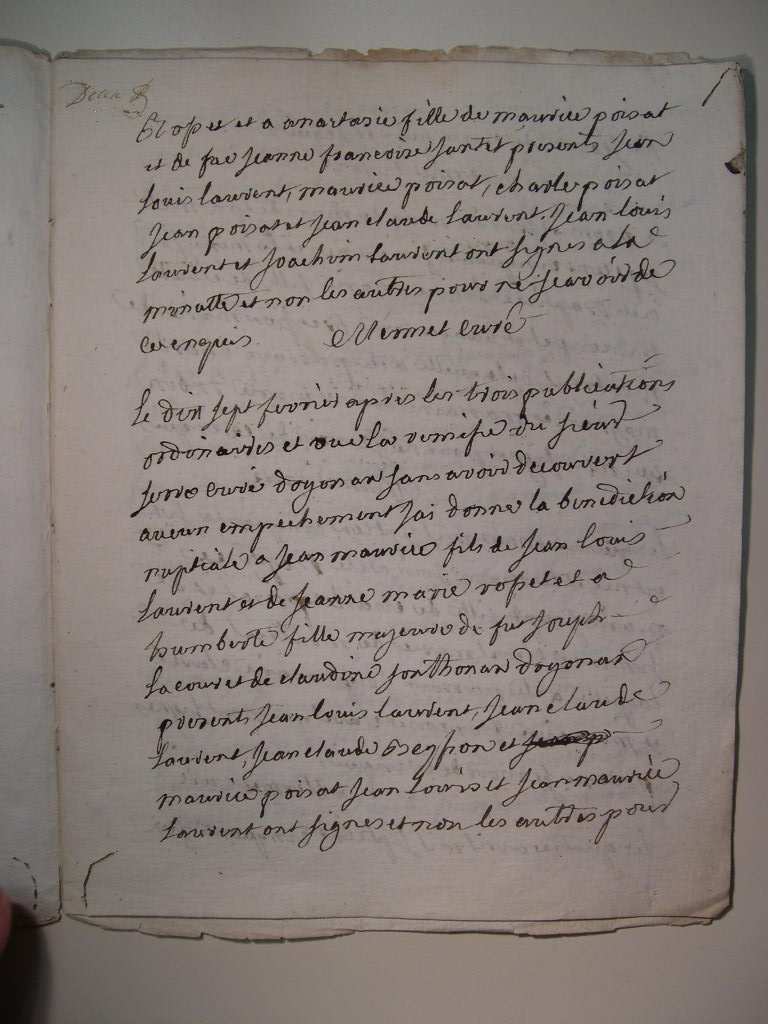 ropet et a anartasie fille de maurice poisat
et de fue jeanne francoise santet presents jean
louis laurent, maurice poisat, charle poisat
jean poisat et jean claude laurent. jean louis
laurent et joachim laurent ont signes a la
minutte et non les autres pour ne scavoir de
ce enquis Mermet curé
le dix sept fevrier apres les trois publications
ordinaires et vue la remise du sieur
curé doyonax sans avoir decouvert
aucun empechement jai donne la benediction
nuptiale a jean maurice fils de jean louis
laurent et de jeanne marie ropet et a
humberte fille majeure de fu joseph
lacour et de claudine sonthonax doyonax
presents jean louis laurent, jean claude
laurent, jean claude et
maurice poisat jean louis et jean maurice
laurent ont signes et non les autres pour